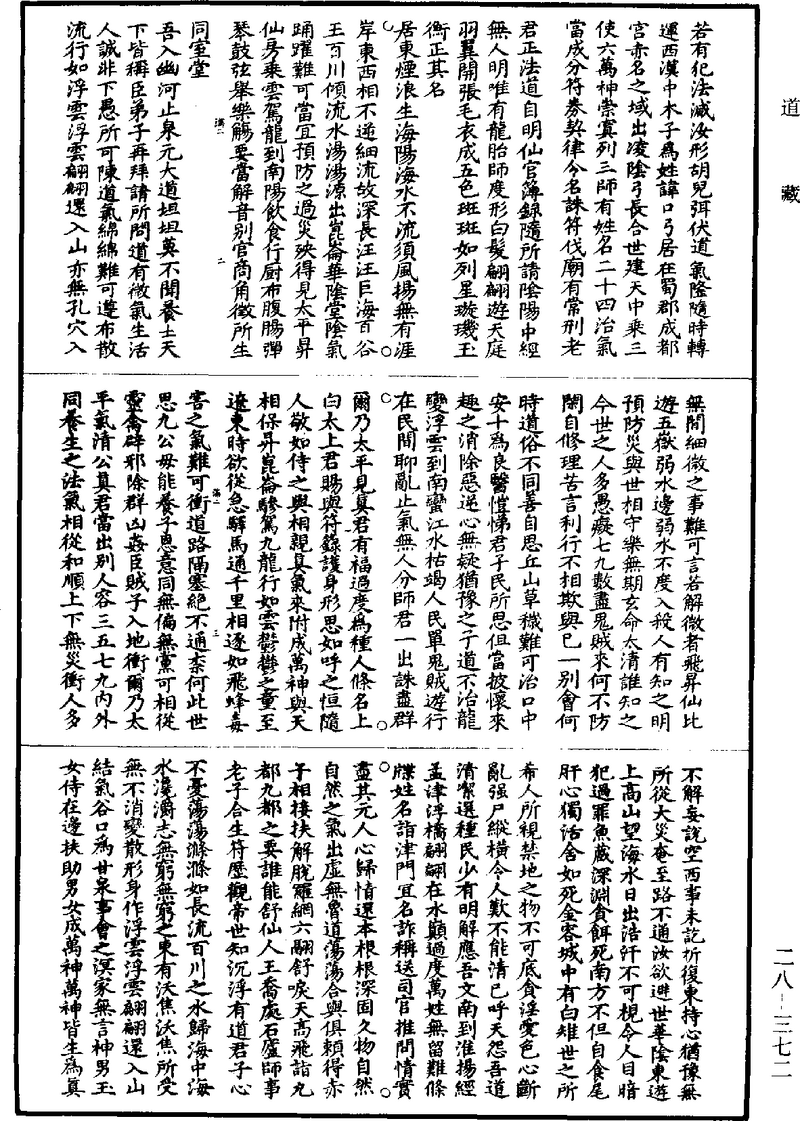 道藏
若有犯法滅汝形胡兒弭伏道氣隆隨時轉
運西漢中木子為姓諱口弓居在蜀郡成都
宮赤名之域出凌陰弓長合世建天中乘三
使六萬神崇寞列三師有姓名二十四治氣
當成分符券契律令名誅符伐廟有常刑老
君正法道自明仙官簿錄隨所請陰陽中經
無人明唯有龍胎師度形白髮翩翩遊天庭
羽翼開張毛衣成五色斑斑如列星璇璣玉
衡正其名
居東煙浪生海陽海水不流須風揚無有涯
岸東西相不逆細流故深長汪汪巨海百谷
王百川傾流水湯湯源出崑崙華陰堂陰氣
踊躍難可當宜預防之過災殃得見太平昇
仙房乘雲駕龍到南陽飲食行厨布腹腸彈
琴鼓弦舉樂觴要當解音別宮商角徵所生
同室堂
吾入幽河止泉元大道坦坦莫不聞養士天
下皆稱臣弟子再拜請所問道有微氣生活
人誠非下愚所可陳道氣綿綿難可遵布散
流行如浮雲浮雲翩翩還入山亦無孔穴入
無間細微之事難可言若解微者飛昇仙比
遊五嶽弱水邊弱水不度入殺人有知之明
預防災與世相守樂無期玄命太清誰知之
今世之人多愚癡七九數盡鬼賊來何不防
閑自修理苦言利行不相欺與已一別會何
時道俗不同善自思丘山草穢難可治口中
安十為良醫愷悌君子民所思但當披懷來
趣之消除惡逆心無疑猶豫之子道不治龍
變浮雲到南蠻江水枯竭人民單鬼賊遊行
在民間聊亂止氣無人分師君一出誅盡群
爾乃太平見真君有福過度為種人條名上
白太上君賜與符籙護身形思如呼之恒隨
人敬如侍之與相親真氣來附成萬神與天
相保昇崑崙驂駕九龍行如雲鬱鬱之童至
遠東時欲從急驛馬通千里相逐如飛蜂毒
害之氣難可衝道路隔塞絕不通柰何此世
思九公毋能養子恩意同無偏無黨可相從
靈禽辟邪除群凶姦臣賊子入地衝爾乃太
平氣清公真君當出別人容三五七九內外
同養生之法氣相從和順上下無災衝人多
不解妄說空西事未訖折復東持心猶豫無
所從大災奄至路不通汝欲避世華陰東遊
上高山望海水日出浩汗不可視令人目暗
犯過罪魚藏深淵貪餌死南方不但自食尾
肝心獨活舍如死金容城中有白雉世之所
希人所視禁地之物不可底貪淫愛色心斷
亂強尸縱橫令人歎不能清已呼天怨吾道
清潔選種民少有明解應吾文南到淮揚經
孟津浮橋翩翩在水巔過度萬姓無留難條
牒姓名詣津門冝名詐稱送司官推問情實
盡其元人心歸情還本根根深固久物自然
自然之氣出虛無魯道蕩蕩合與俱賴得赤
子相接扶解脫羅網六翮舒唳天高飛詣九
都九都之要誰能舒仙人王喬處石廬師事
老子合生符歷觀帝世知沉浮有道君子心
不憂蕩蕩滌滌如長流百川之水歸海中海
水澆灂志無窮無窮之東有沃焦沃焦所受
無不消變散形身作浮雲浮雲翩翩還入山
結氣谷口為甘泉事會之溟家無言神男玉
女侍在邊扶助男女成萬神萬神皆生為真
二八－三七二